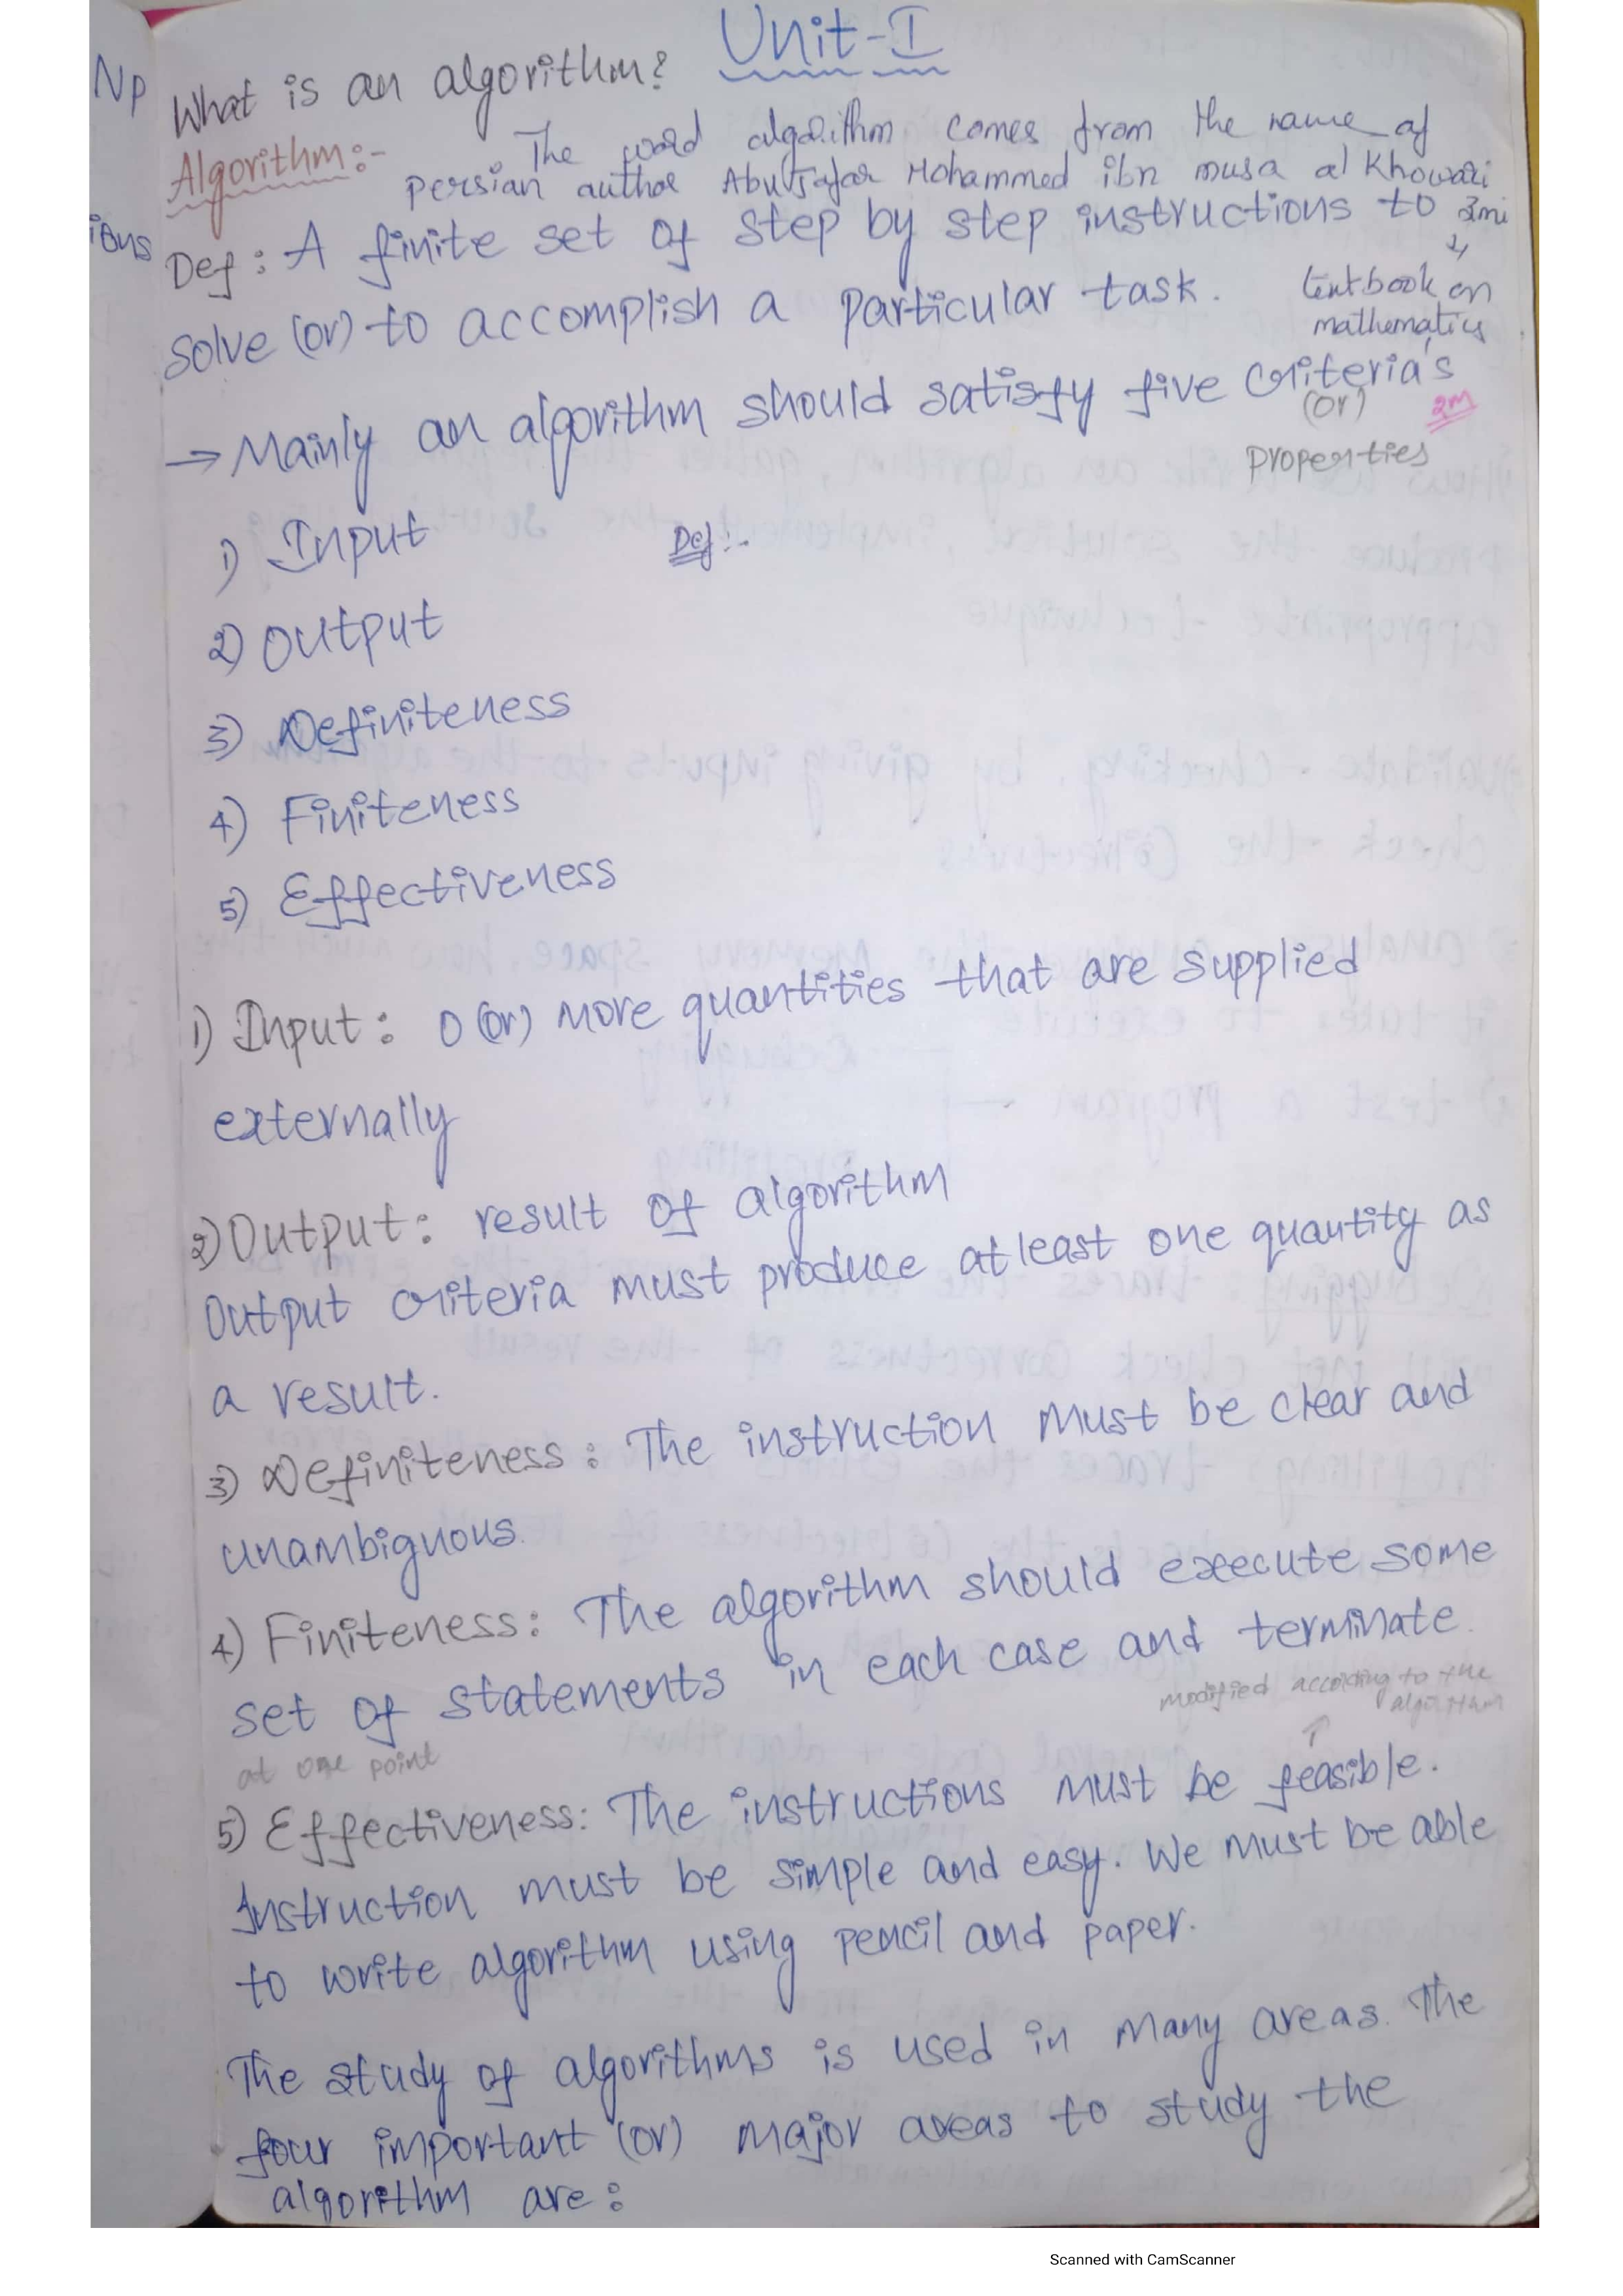 Unit-I
Np
What is an algorithm?
Algorithm:- The word algorithm comes from the name of
persian author Abu Jafar Mohammed ibn musa al Khowari
ions
Def: A finite set of step by step instructions to zmi
solve (or) to accomplish a particular task. textbook on
mathematics
→ Mainly an algorithm should satisfy five criteria's
(or) 2M
properties
1) Input Def:-
2) Output
3) Definiteness
4) Finiteness
5) Effectiveness
1) Input: 0 (or) more quantities that are supplied
externally
2) Output: result of algorithm
Output criteria must produce atleast one quantity as
a result.
3) Definiteness: The instruction must be clear and
unambiguous.
4) Finiteness: The algorithm should execute some
set of statements in each case and terminate.
at one point
modified according to the
algorithm
5) Effectiveness: The instructions must be feasible.
Instruction must be simple and easy. We must be able
to write algorithm using pencil and paper.
The study of algorithms is used in many areas. The
four important (or) major areas to study the
algorithm are:
Scanned with CamScanner